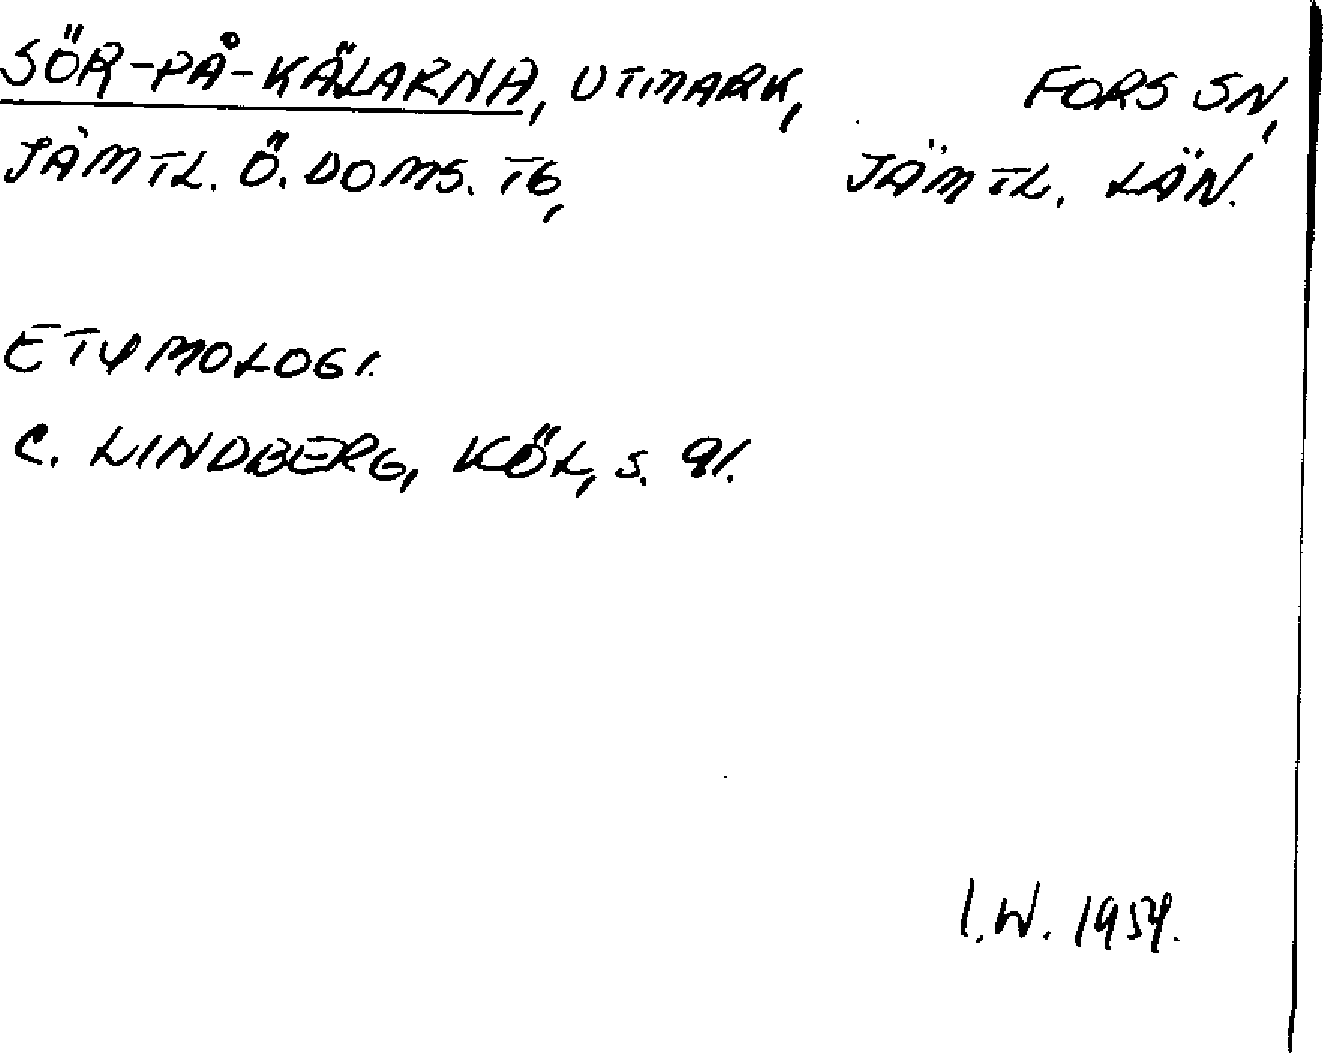 SÖR-PÅ-KÄLARNA, UTMARK, FORS SN,
JÄMTL. Ö. DOMS. TG, JÄMTL. LÄN.
ETYMOLOGI.
C. LINDBERG, KÖL, S. 91.
I.W. 1954.